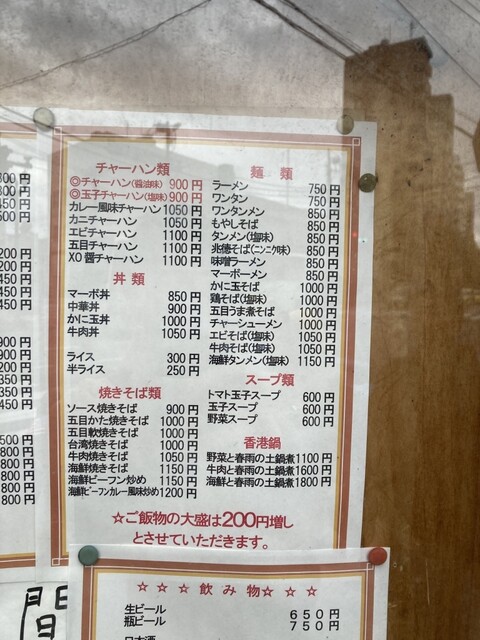 チャーハン類
◎チャーハン(醤油味) 900円
◎玉子チャーハン(塩味) 900円
カレー風味チャーハン 1050円
カニチャーハン 1050円
エビチャーハン 1100円
五目チャーハン 1100円
XO醤チャーハン 1100円
丼類
マーボ丼 850円
中華丼 900円
かに玉丼 1000円
牛肉丼 1050円
ライス 300円
半ライス 250円
焼きそば類
ソース焼きそば 900円
五目かた焼きそば 1000円
五目軟焼きそば 1000円
台湾焼きそば 1000円
牛肉焼きそば 1050円
海鮮焼きそば 1150円
海鮮ビーフン炒め 1150円
海鮮ビーフンカレー風味炒め 1200円
麺類
ラーメン 750円
ワンタン 750円
ワンタンメン 850円
もやしそば 850円
タンメン(塩味) 850円
兆徳そば(ニンニク味) 850円
味噌ラーメン 850円
マーボーメン 850円
かに玉そば 1000円
鶏そば(塩味) 1000円
五目うま煮そば 1000円
チャーシューメン 1000円
エビそば(塩味) 1050円
牛肉そば(塩味) 1050円
海鮮タンメン(塩味) 1150円
スープ類
トマト玉子スープ 600円
玉子スープ 600円
野菜スープ 600円
香港鍋
野菜と春雨の土鍋煮 1100円
牛肉と春雨の土鍋煮 1600円
海鮮と春雨の土鍋煮 1800円
☆ご飯物の大盛は200円増し
とさせていただきます。
☆☆☆飲み物☆☆☆
生ビール 650円
瓶ビール 750円